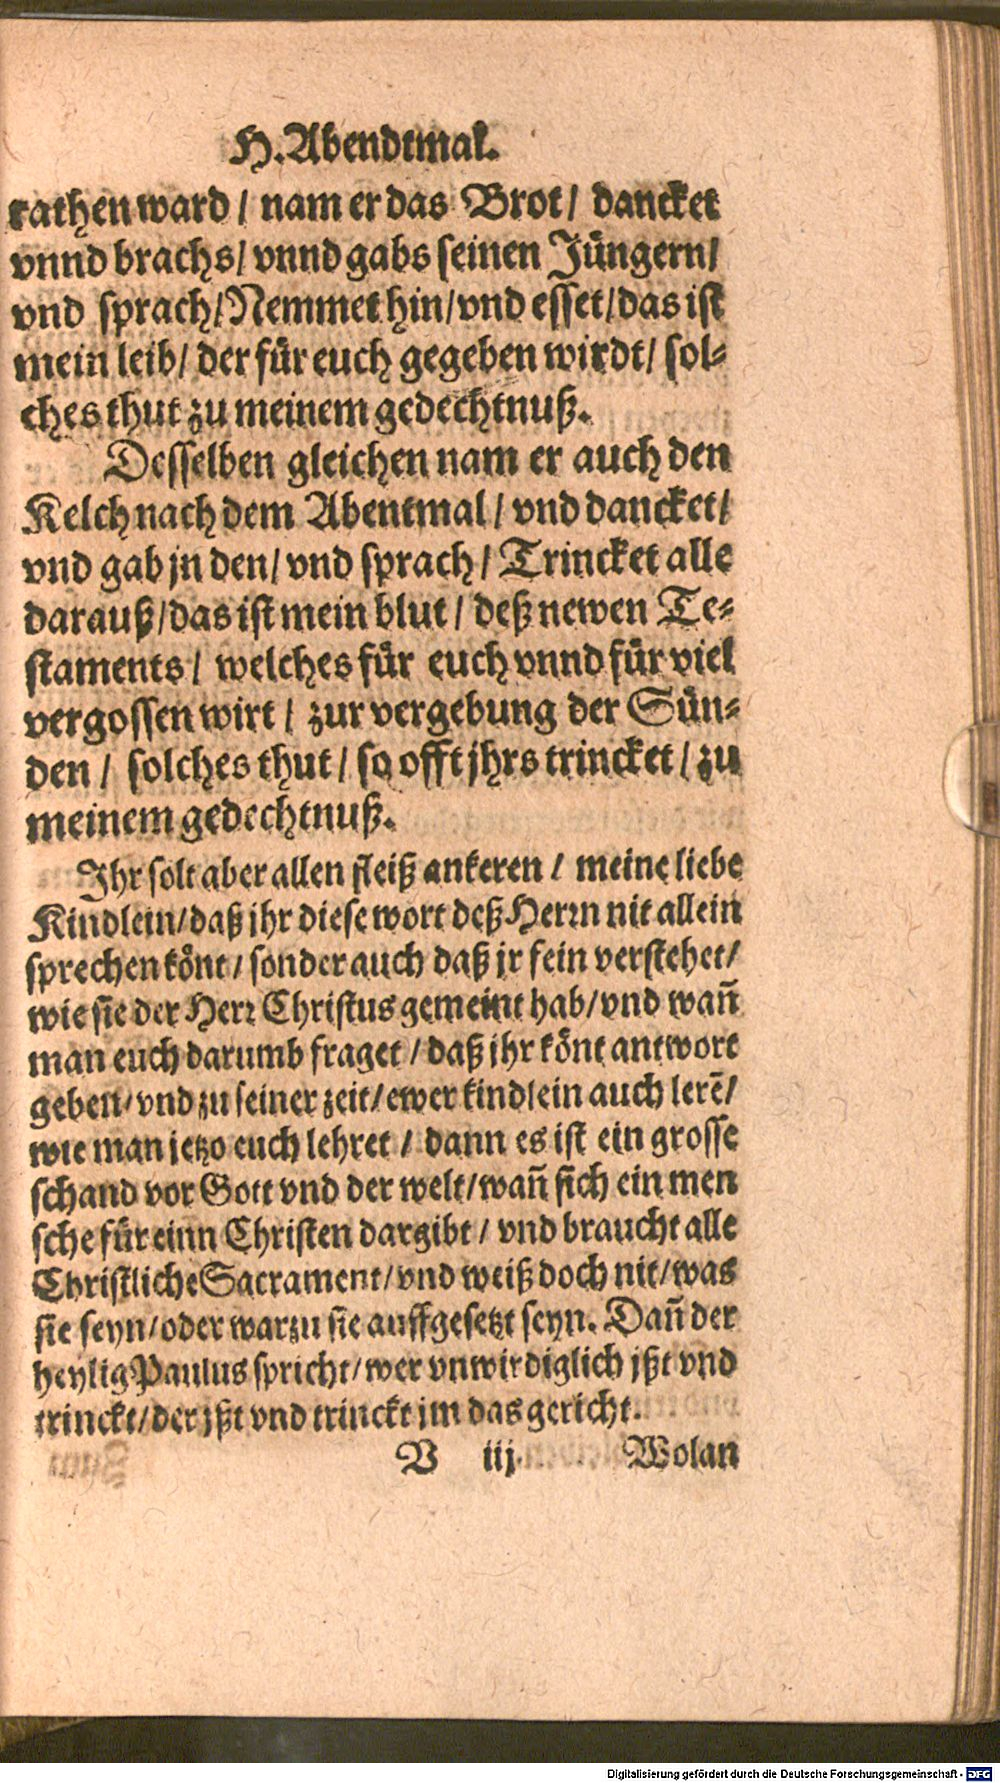 H. Abendtmal.
rathen ward / nam er das Brot / dancket
vnnd brachs / vnnd gabs seinen Jüngern /
vnd sprach / Nemmet hin / vnd esset / das ist
mein leib / der für euch gegeben wirdt / sol-
ches thut zu meinem gedechtnuß.
Desselben gleichen nam er auch den
Kelch nach dem Abentmal / vnd dancket /
vnd gab jn den / vnd sprach / Trincket alle
darauß / das ist mein blut / deß newen Te-
staments / welches für euch vnnd für viel
vergossen wirt / zur vergebung der Sün-
den / solches thut / so offt jhrs trincket / zu
meinem gedechtnuß.
Ihr solt aber allen fleiß ankeren / meine liebe
Kindlein / daß jhr diese wort deß Herrn nit allein
sprechen könt / sonder auch daß jr fein verstehet /
wie sie der Herr Christus gemeint hab / vnd wañ
man euch darumb fraget / daß jhr könt antwort
geben / vnd zu seiner zeit / ewer kindlein auch lerẽ /
wie man jetzo euch lehret / dann es ist ein grosse
schand vor Gott vnd der welt / wañ sich ein men
sche für einn Christen dargibt / vnd braucht alle
Christliche Sacrament / vnd weiß doch nit / was
sie seyn / oder warzu sie auffgesetzt seyn. Dañ der
heylig Paulus spricht / wer vnwirdiglich jßt vnd
trinckt / der jßt vnd trinckt jm das gericht.
V iij Wolan
Digitalisierung gefördert durch die Deutsche Forschungsgemeinschaft - DFG